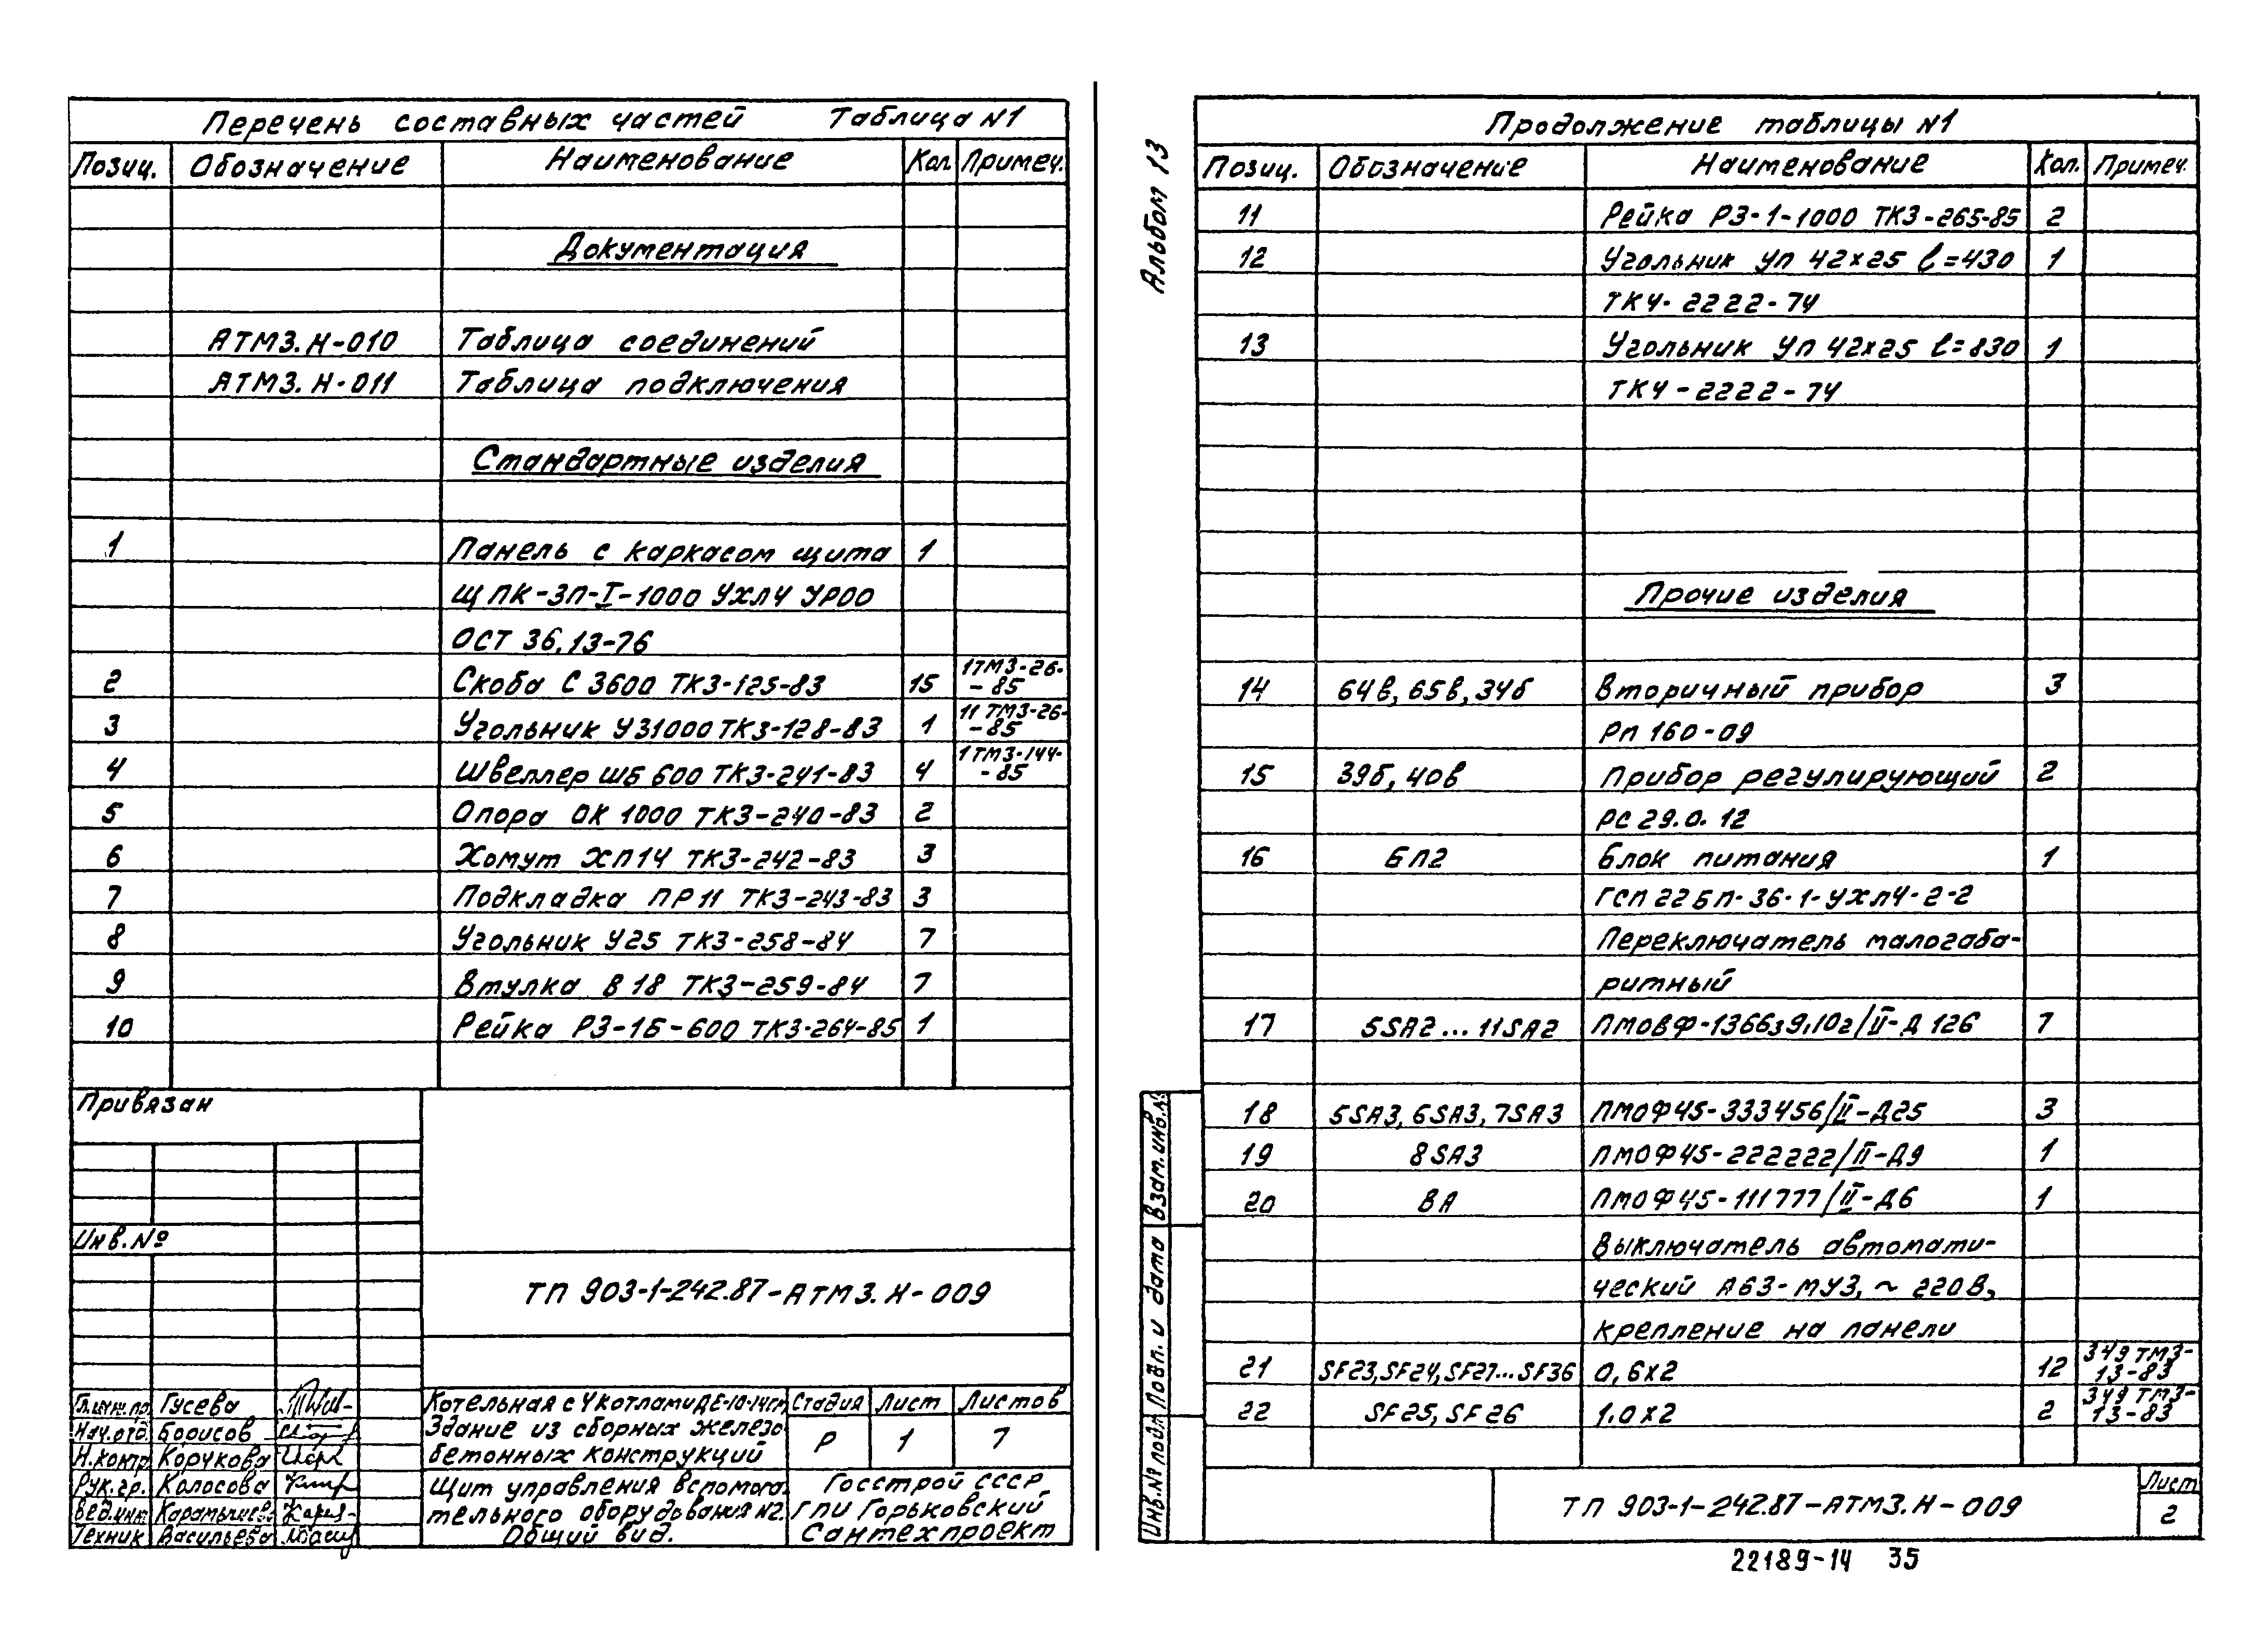 Перечень составных частей Таблица N1
Позиц. Обозначение Наименование Кол. Примеч.
Документация
АТМ3.Н-010 Таблица соединений
АТМ3.Н-011 Таблица подключения
Стандартные изделия
1 Панель с каркасом щита 1
ЩПК-ЗП-I-1000 УХЛ4 УР00
ОСТ 36.13-76
2 Скоба С3600 ТК3-125-83 15 1ТМ3-26-
-85
3 Угольник У31000 ТК3-128-83 1 11ТМ3-26-
-85
4 Швеллер ШБ 600 ТК3-241-83 4 1ТМ3-144-
-85
5 Опора ОК 1000 ТК3-240-83 2
6 Хомут ХП14 ТК3-242-83 3
7 Подкладка ПР11 ТК3-243-83 3
8 Угольник У25 ТК3-258-84 7
9 Втулка В18 ТК3-259-84 7
10 Рейка РЗ-1Б-600 ТК3-264-85 1
Привязан
Инв.№
ТП 903-1-242.87-АТМ3.Н-009
Гл.инж.пр. Гусева
Нач.отд. Борисов
Н.контр. Корукова
Рук.гр. Колосова
Вед.инж.
Техник Васильева
Котельная с 4 котлами ДЕ-10-14гм
Здание из сборных железо-
бетонных конструкций
Стадия Лист Листов
Р 1 7
Щит управления вспомога-
тельного оборудования №2.
Общий вид.
Госстрой СССР
ГПИ Горьковский
Сантехпроект
Альбом 13
Продолжение таблицы N1
Позиц. Обозначение Наименование Кол. Примеч.
11 Рейка РЗ-1-1000 ТК3-265-85 2
12 Угольник УП 42x25 l=430 1
ТК4-2222-74
13 Угольник УП 42x25 l=830 1
ТК4-2222-74
Прочие изделия
14 64в, 65в, 34б Вторичный прибор 3
РП 160-09
15 39б, 40в Прибор регулирующий 2
РС 29.0.12
16 БП2 Блок питания 1
ГСП 22БП-36-1-УХЛ4-2-2
Переключатель малогаба-
ритный
17 5SA2...11SA2 ПМОВФ-1366з9,10г/II-Д126 7
18 5SA3, 6SA3, 7SA3 ПМОФ45-333456/II-Д25 3
19 8SA3 ПМОФ45-222222/II-Д9 1
20 8A ПМОФ45-111777/II-Д6 1
Выключатель автомати-
ческий А63-МУ3, ~220В,
крепление на панели
21 SF23,SF24,SF27...SF36 0,6x2 12 349ТМ3-
13-83
22 SF25, SF26 1.0x2 2 349ТМ3-
13-83
ТП 903-1-242.87-АТМ3.Н-009
Лист
2
Взам.инв.№
Подп. и дата
Инв.№ подл.
22189-14 35